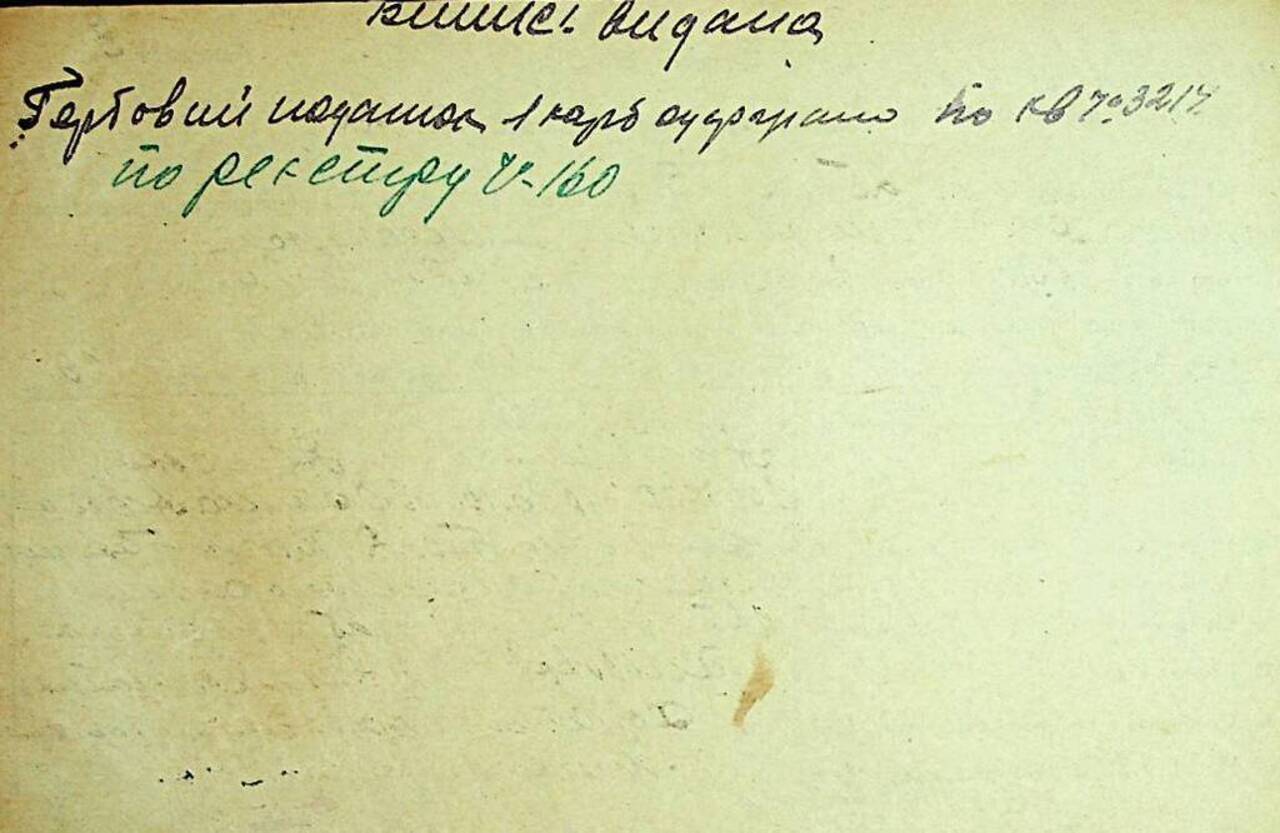 Випись видана
Гербовий податок 1 карб одержано по кв № 3214
по реєстру № 160